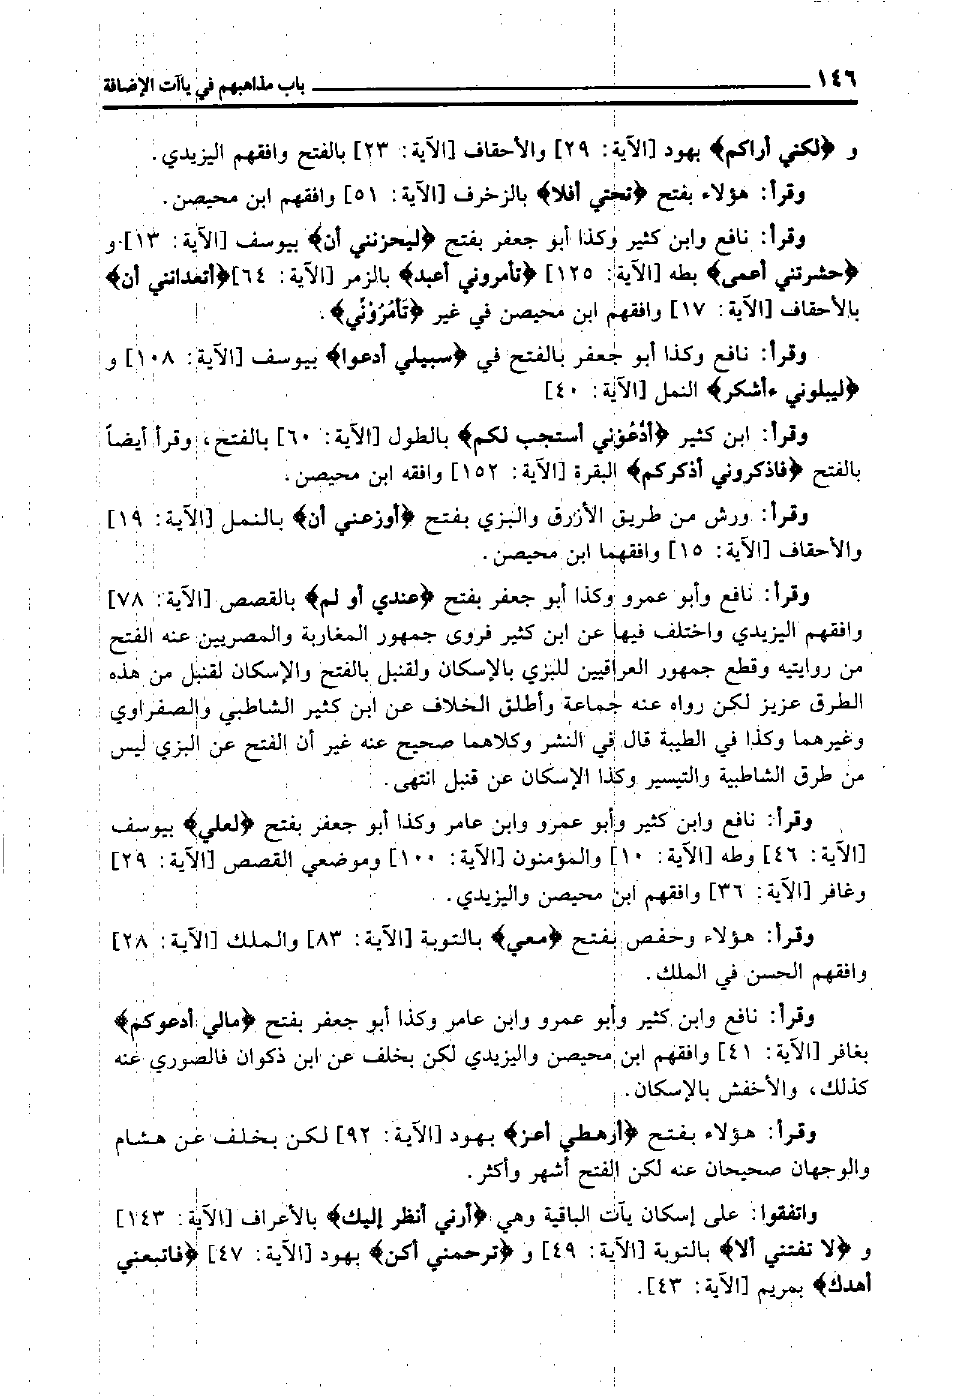 ١٤٦ باب مذاهبهم في ياآت الإضافة
و ﴿لكني أراكم﴾ بهود [الآية: ٢٩] والأحقاف [الآية: ٢٣] بالفتح وافقهم اليزيدي.
وقرأ: هؤلاء بفتح ﴿تحتي أفلا﴾ بالزخرف [الآية: ٥١] وافقهم ابن محيصن.
وقرأ: نافع وابن كثير وكذا أبو جعفر بفتح ﴿ليحزنني أن﴾ بيوسف [الآية: ١٣] و
﴿حشرتني أعمى﴾ بطه [الآية: ١٢٥] ﴿تأمروني أعبد﴾ بالزمر [الآية: ٦٤] ﴿أتعدانني أن﴾
بالأحقاف [الآية: ١٧] وافقهم ابن محيصن في غير ﴿تَأْمُرُوْنِّي﴾.
وقرأ: نافع وكذا أبو جعفر بالفتح في ﴿سبيلي أدعوا﴾ بيوسف [الآية: ١٠٨] و
﴿ليبلوني ءأشكر﴾ النمل [الآية: ٤٠]
وقرأ: ابن كثير ﴿أدْعُوْني أستجب لكم﴾ بالطول [الآية: ٦٠] بالفتح، وقرأ أيضاً
بالفتح ﴿فاذكروني أذكركم﴾ البقرة [الآية: ١٥٢] وافقه ابن محيصن.
وقرأ: ورش من طريق الأزرق والبزي بفتح ﴿أوزعني أن﴾ بالنمل [الآية: ١٩]
والأحقاف [الآية: ١٥] وافقهما ابن محيصن.
وقرأ: نافع وأبو عمرو وكذا أبو جعفر بفتح ﴿عندي أو لم﴾ بالقصص [الآية: ٧٨]
وافقهم اليزيدي واختلف فيها عن ابن كثير فروى جمهور المغاربة والمصريين عنه الفتح
من روايتيه وقطع جمهور العراقيين للبزي بالإسكان ولقنبل بالفتح والإسكان لقنبل من هذه
الطرق عزيز لكن رواه عنه جماعة وأطلق الخلاف عن ابن كثير الشاطبي والصفراوي
وغيرهما وكذا في الطيبة قال في النشر وكلاهما صحيح عنه غير أن الفتح عن البزي ليس
من طرق الشاطبية والتيسير وكذا الإسكان عن قنبل انتهى.
وقرأ: نافع وابن كثير وأبو عمرو وابن عامر وكذا أبو جعفر بفتح ﴿لعلي﴾ بيوسف
[الآية: ٤٦] وطه [الآية: ١٠] والمؤمنون [الآية: ١٠٠] وموضعي القصص [الآية: ٢٩]
وغافر [الآية: ٣٦] وافقهم ابن محيصن واليزيدي.
وقرأ: هؤلاء وحفص بفتح ﴿معي﴾ بالتوبة [الآية: ٨٣] والملك [الآية: ٢٨]
وافقهم الحسن في الملك.
وقرأ: نافع وابن كثير وأبو عمرو وابن عامر وكذا أبو جعفر بفتح ﴿مالي أدعوكم﴾
بغافر [الآية: ٤١] وافقهم ابن محيصن واليزيدي لكن بخلف عن ابن ذكوان فالصوري عنه
كذلك، والأخفش بالإسكان.
وقرأ: هؤلاء بفتح ﴿أرهطي أعز﴾ بهود [الآية: ٩٢] لكن بخلف عن هشام
والوجهان صحيحان عنه لكن الفتح أشهر وأكثر.
واتفقوا: على إسكان يآت الباقية وهي ﴿أرني أنظر إليك﴾ بالأعراف [الآية: ١٤٣]
و ﴿لا تفتني ألا﴾ بالتوبة [الآية: ٤٩] و ﴿ترحمني أكن﴾ بهود [الآية: ٤٧] ﴿فاتبعني
أهدك﴾ بمريم [الآية: ٤٣].